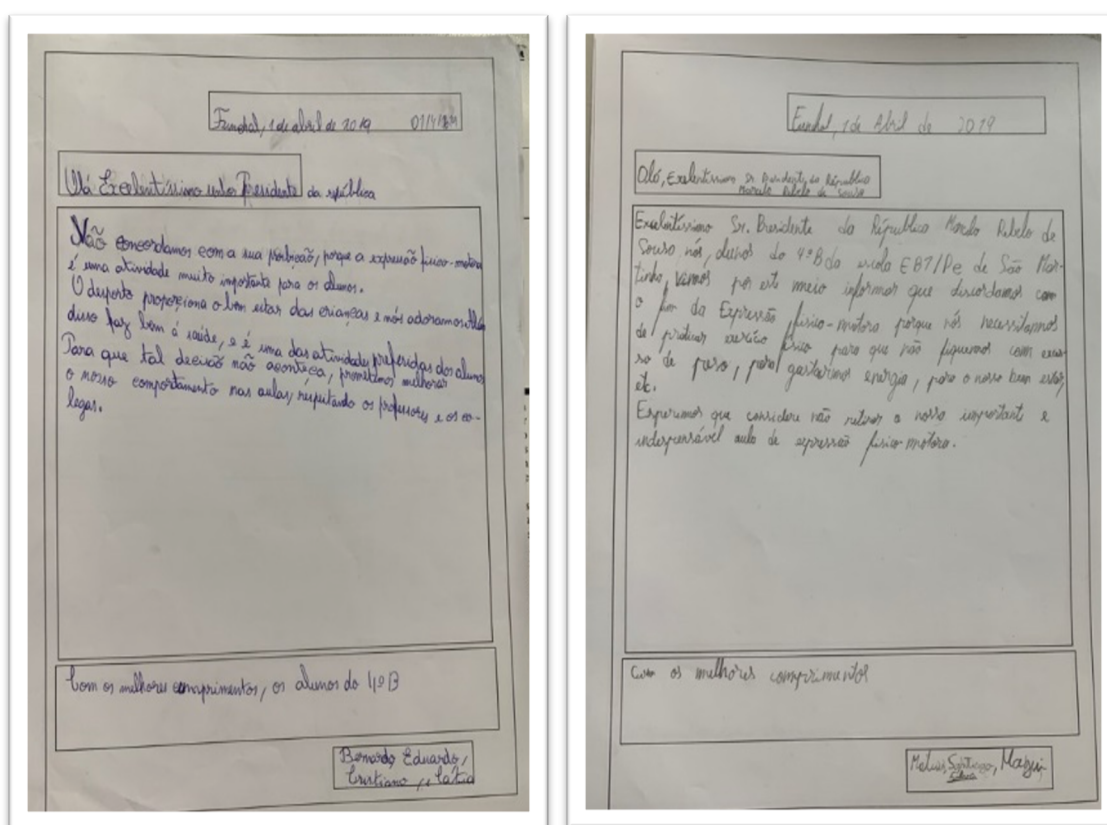 Funchal, 1 de abril de 2019
Olá Excelentíssimo senhor Presidente da república
Não concordamos com a sua, porque a expressão físico-motora
é uma atividade muito importante para os alunos.
O desporto proporciona o bem estar das crianças e nós adoramos. Além
disso faz bem á saúde, e é uma das atividades preferidas dos alunos
Para que tal decisão não aconteça, prometemos melhorar
o nosso comportamento nas aulas, respeitando os professores e os co-
legas.
Com os melhores comprimentos, os alunos do 4ºB
Bernardo, Eduardo,
Cristiano, e Cátia
Funchal, 1 de Abril de 2019
Olá, Excelentíssimo Sr Presidente da Républica
Marcelo Rebelo de Sousa
Excelentíssimo Sr. Presidente da Républica Marcelo Rebelo de
Sousa nós, alunos do 4ºB da escola EB1/Pe de São Mar-
tinho, vamos por este meio informar que discordamos com
o fim da Expressão físico-motora porque nós necessitamos
de praticar exercício físico para que não fiquemos com exces-
so de peso, para gastarmos energia, para o nosso bem estar,
etc.
Esperemos que considere não retirar a nossa importante e
indespensável aula de expressão físico-motora.
Com os melhores comprimentos
Santiago,